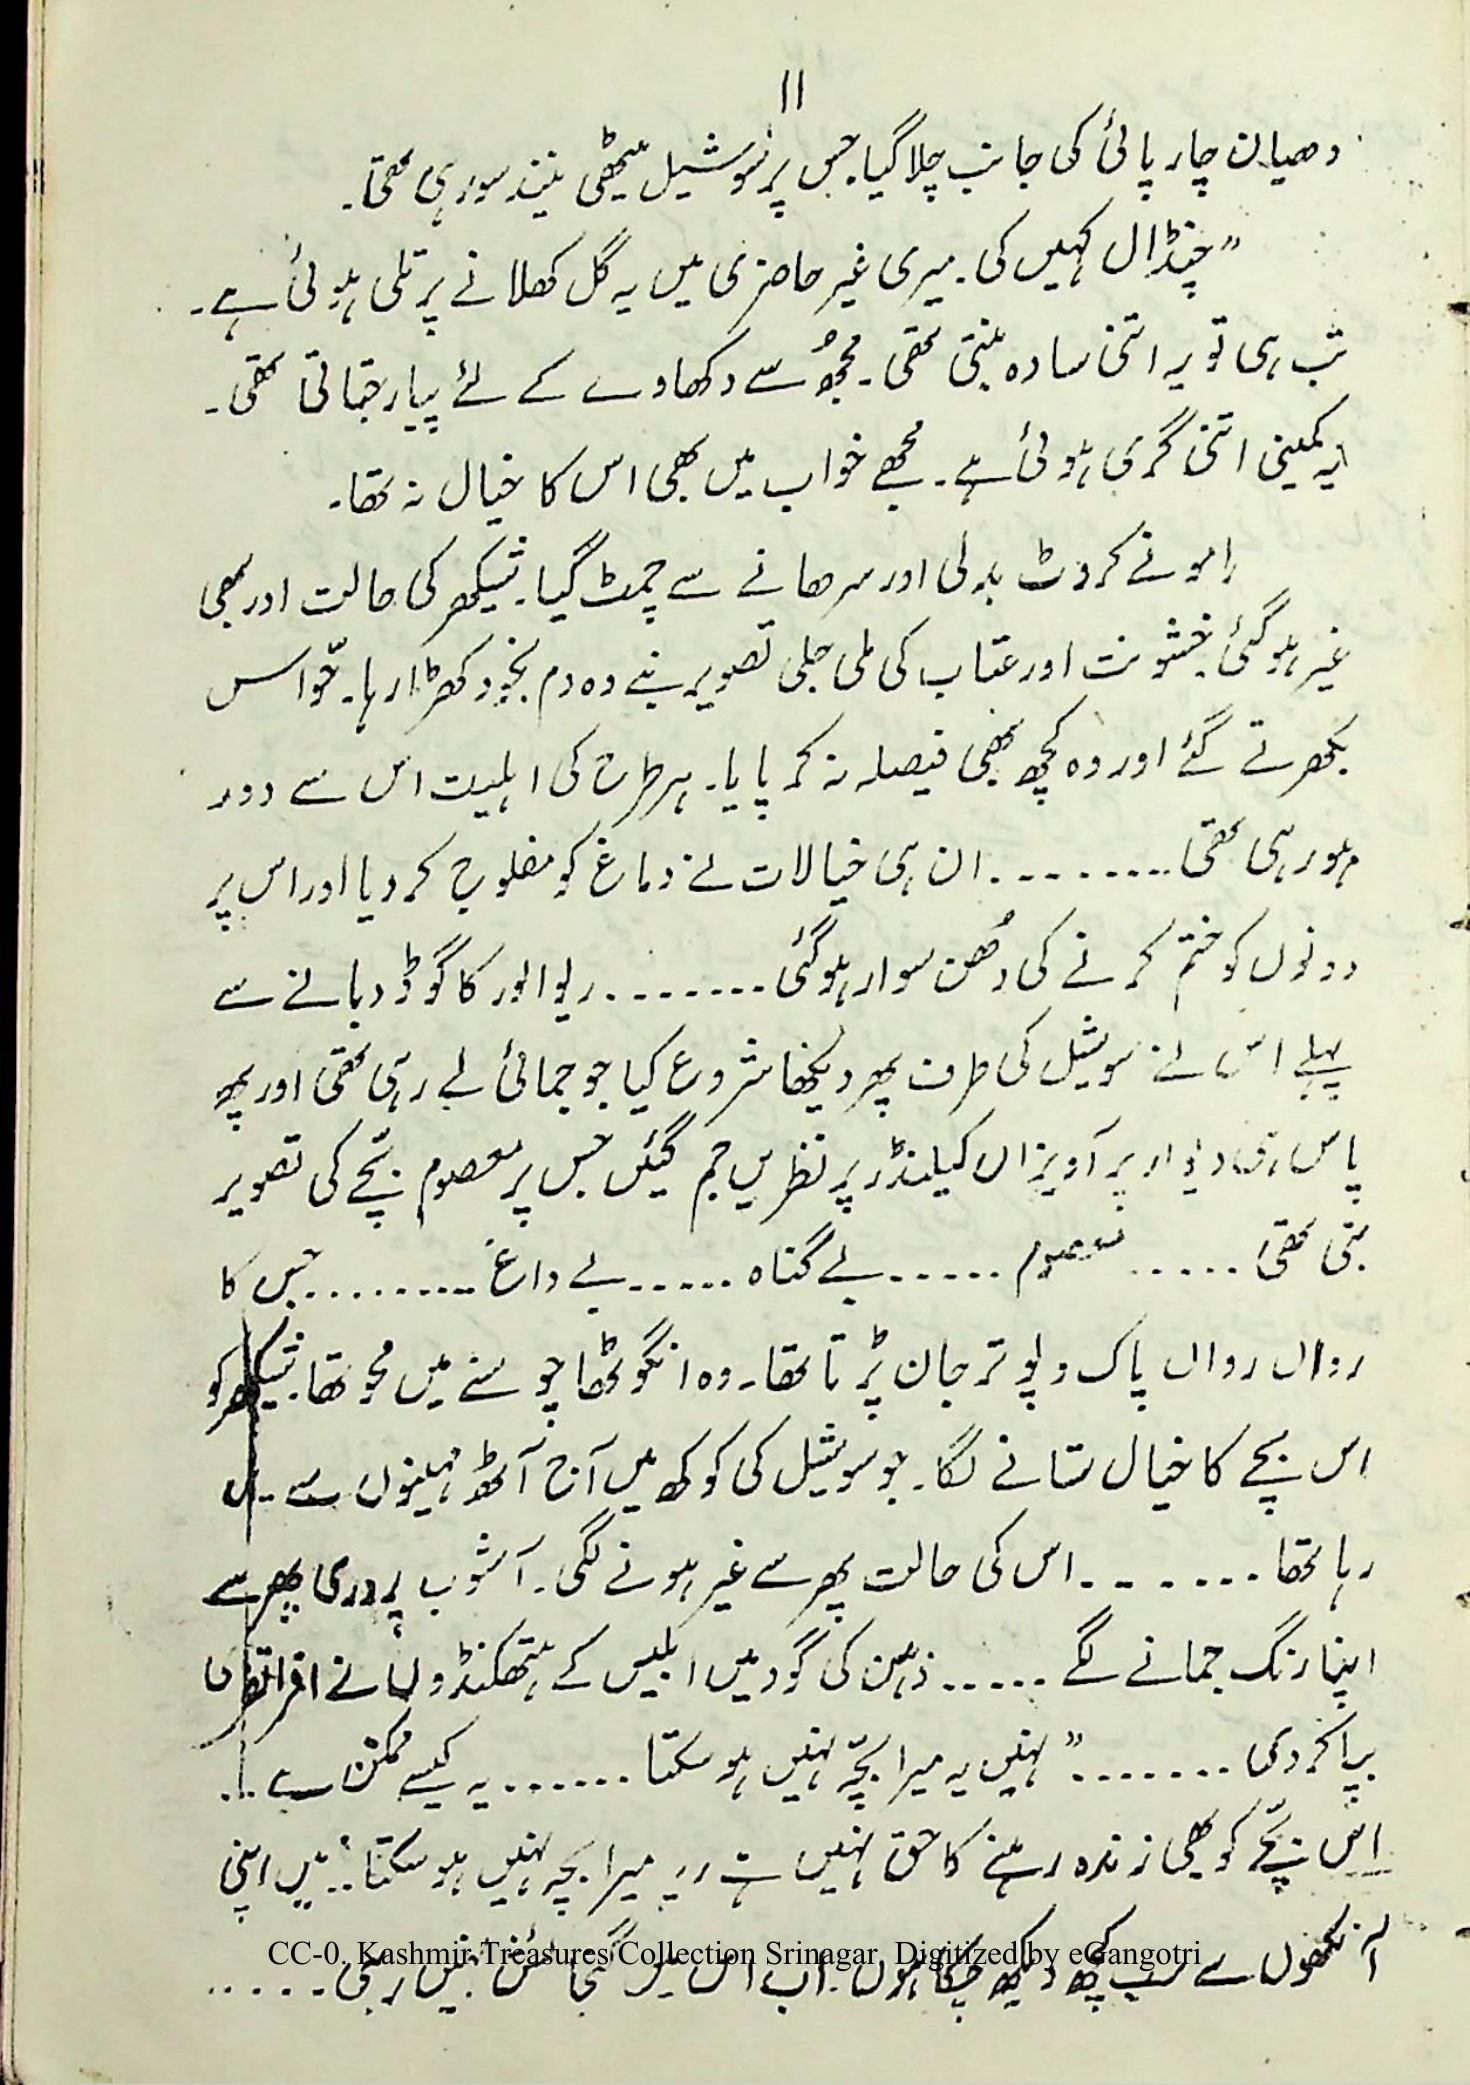 ۱۱
دھیان چارپائی کی جانب چلا گیا۔ جس پر سوشیل میٹھی نیند سو رہی تھی۔
”چنڈال کہیں کی۔ میری غیر حاضری میں یہ گل کھلانے پر تلی ہوئی ہے۔
تب ہی تو یہ اتنی سادہ بنتی تھی۔ مجھُ سے دکھاوے کے لئے پیار جتاتی تھی۔
یہ کمینی اتنی گری ہوئی ہے۔ مجھے خواب میں بھی اس کا خیال نہ تھا۔
رامو نے کروٹ بدلی اور سرھانے سے چمٹ گیا۔ شیکھر کی حالت اور بھی
غیر ہو گئی۔ خشونت اور عتاب کی ملی جلی تصویر بنے وہ دم بخود کھڑا رہا۔ حّواس
بکھرتے گئے اور وہ کچھ بھی فیصلہ نہ کر پایا۔ ہر طرح کی اہلیت اس سے دور
ہو رہی تھی ......... ان ہی خیالات نے دماغ کو مفلوج کر دیا اور اس پر
دونوں کو ختم کرنے کی دُھن سوار ہو گئی ........ ریوالور کا گوڈ دبانے سے
پہلے اس نے سوشیل کی طرف پھر دیکھنا شروع کیا جو جمائی لے رہی تھی اور پھر
پاس ہی دیوار پر آویزاں کیلنڈر پر نظریں جم گئیں جس پر معصوم بچّے کی تصویر
بنی تھی ...... معصوم ...... بے گناہ ...... بے داغ ......... جس کا
رواں رواں پاک و پوتر جان پڑتا تھا۔ وہ انگوٹھا چوسنے میں محو تھا۔ شیکھر کو
اس بچے کا خیال ستانے لگا۔ جو سوشیل کی کوکھ میں آج آٹھ مہینوں سے پل
رہا تھا ....... اس کی حالت پھر سے غیر ہونے لگی۔ آشوب پروری پھر سے
اپنا رنگ جمانے لگے ...... ذہن کی گود میں ابلیس کے ہتھکنڈوں نے افراتفری
بپا کر دی ........ ”نہیں یہ میرا بچّہ نہیں ہو سکتا ....... یہ کیسے ممکن ہے ...
اس بچّے کو بھی زندہ رہنے کا حق نہیں ہے۔ یہ میرا بچہ نہیں ہو سکتا.. میں اپنی
آنکھوں سے سب کچھ دیکھ چکا ہوں۔ اب اس میں گنجائش نہیں رہی .....
CC-0. Kashmir Treasures Collection Srinagar. Digitized by eGangotri